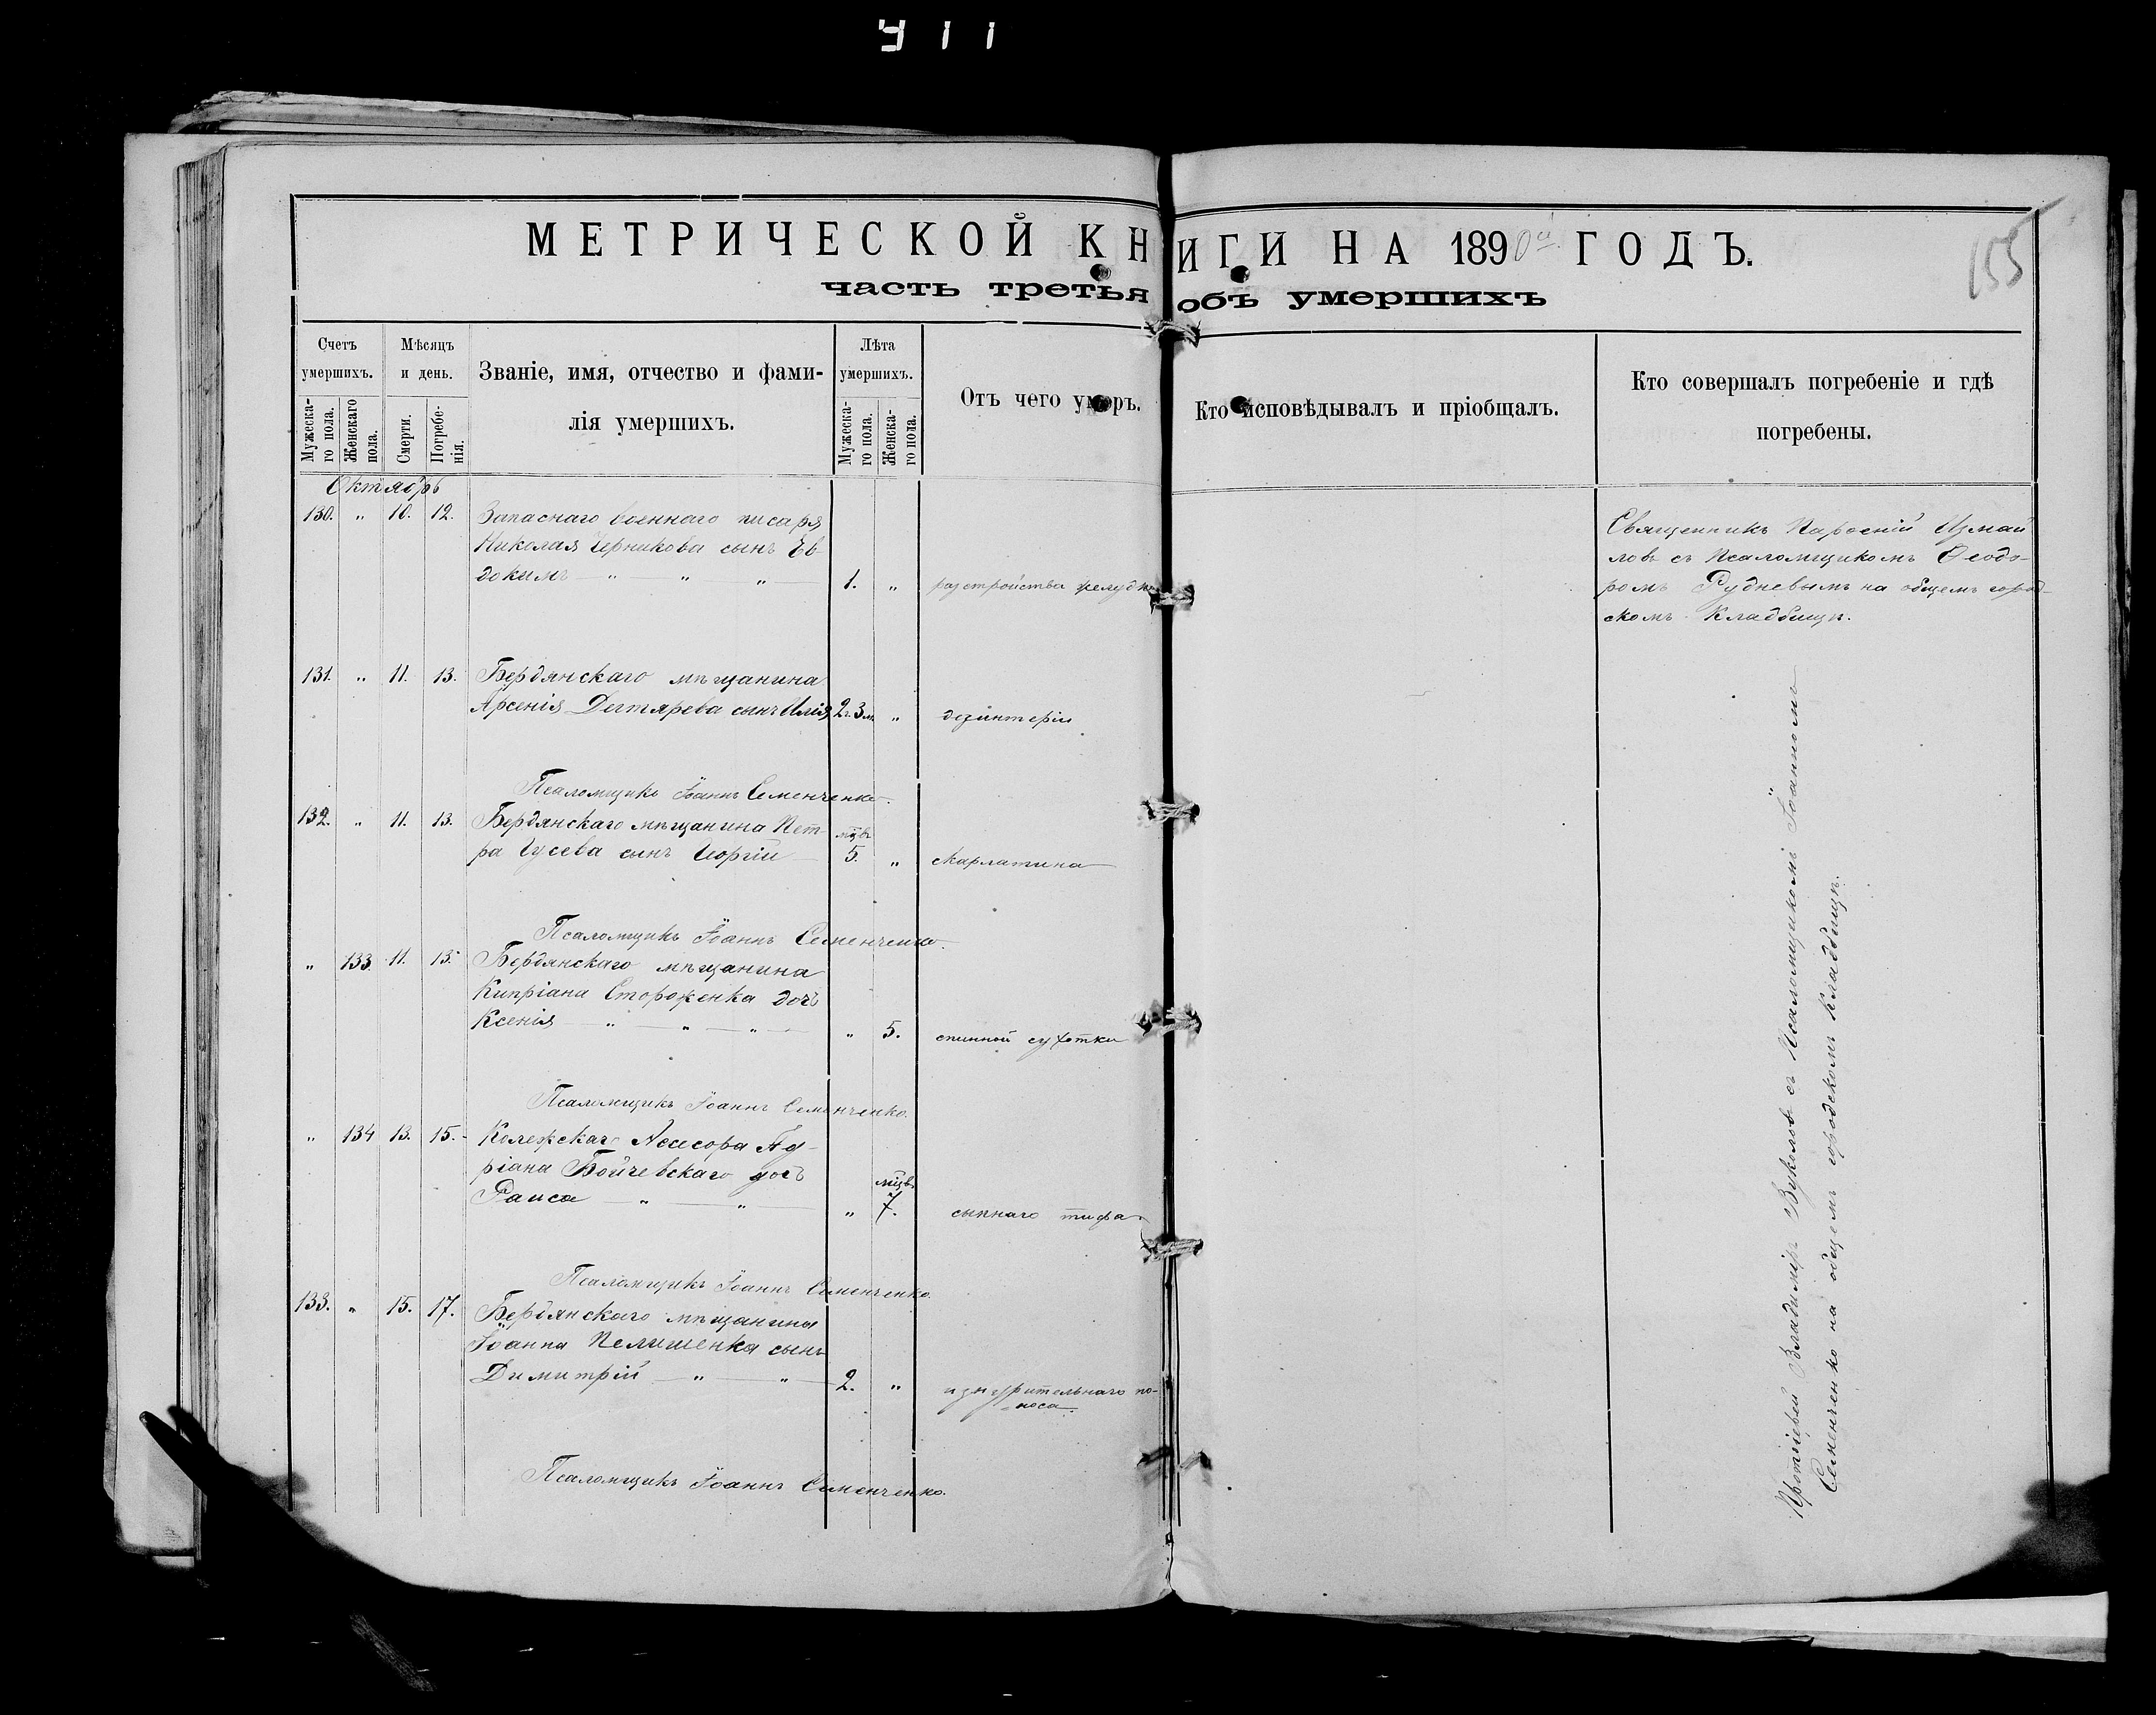 411
МЕТРИЧЕСКОЙ КНИГИ НА 1890й ГОДЪ.
часть третья объ умершихъ
155
Счетъ умершихъ.
Мужеска-го пола.
Женскаго пола.
Мѣсяцъ и день.
Смерти.
Погребе-нія.
Званіе, имя, отчество и фами-
лія умершихъ.
Лѣта умершихъ.
Мужеска-го пола.
Женска-го пола.
Отъ чего умеръ.
Кто исповѣдывалъ и пріобщалъ.
Кто совершалъ погребеніе и гдѣ
погребены.
Октябрь
130. " 10. 12. Запаснаго военнаго писаря
Николая Черникова сынъ Ев-
докимъ — " — " — " — 1. " разстройства желудка
Священникъ Измай
ловъ съ Псаломщикомъ Ѳеодо-
ромъ Рудневымъ на общемъ город-
скомъ Кладбищѣ.
131. " 11. 13. Бердянскаго мѣщанина
Арсенія Дегтярева сынъ Илія 2г.3м. " дезинтеріи
Псаломщикъ Іоаннъ Семенченко.
132. " 11. 13. Бердянскаго мѣщанина Пет-
ра Гусева сынъ Георгій — мцвъ 5. " скарлатина
Псаломщикъ Іоаннъ Семенченко.
" 133. 11. 13. Бердянскаго мѣщанина
Кипріана Стороженка дочь
Ксенія — " — " — " — " 5. спинной сухотки
Псаломщикъ Іоаннъ Семенченко.
" 134 13. 15. Колежскаго Асесора Ад-
ріана Бойчевскаго дочь
Раиса — " — " — " мцвъ 7. сыпнаго тифа
Псаломщикъ Іоаннъ Семенченко.
133. " 15. 17. Бердянскаго мѣщанина
Іоанна Пелишенка сынъ
Димитрій — " — " — 2. " изнурительнаго по-
носа.
Псаломщикъ Іоаннъ Семенченко.
Протоіерей Владиміръ Вуколовъ съ Псаломщикомъ Іоанномъ
Семенченко на общемъ городскомъ кладбищѣ.